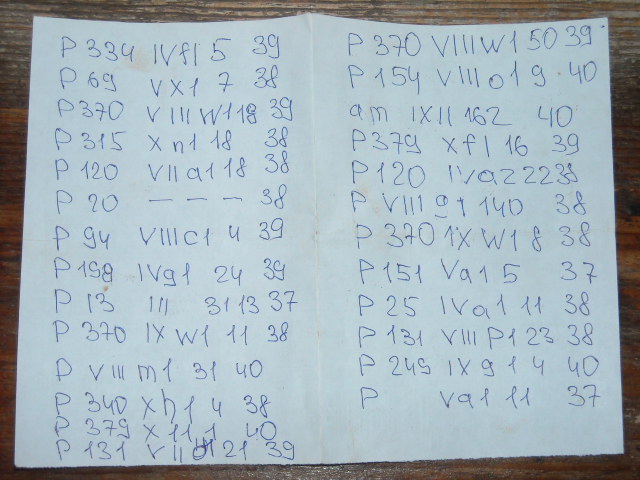 P 334 IV f1 5 39
P 69 V X1 7 38
P 370 VIII W1 18 39
P 315 X n1 18 38
P 120 VII a1 18 38
P 20 — — — 38
P 94 VIII c1 4 39
P 198 IV g1 24 39
P 13 III 31 13 37
P 370 IX W1 11 38
P VIII m1 31 40
P 340 X h1 4 38
P 379 X 11 1 40
P 131 VII 21 39
P 370 VIII W1 50 39
P 154 VIII o1 9 40
am IX II 162 40
P 379 X f1 16 39
P 120 IV a2 22 38
P VIII g1 140 38
P 370 IX W1 8 38
P 151 V a1 5 37
P 25 IV a1 11 38
P 131 VIII P1 23 38
P 249 IX g1 4 40
P V a1 11 37